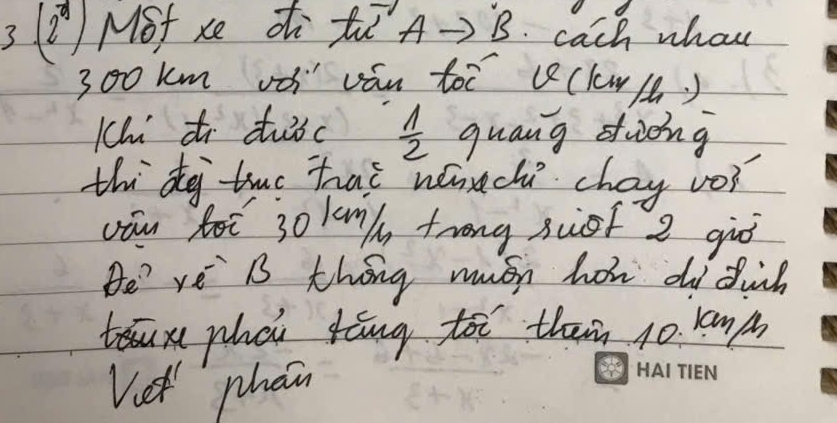 3 (2đ) Một xe đi từ A → B. cách nhau
300 km với vân tốc v (km/h.)
Khi đi được 1/2 quang đường
thì trục trặc nên xe chỉ chạy với
vân tốc 30 km/h trong suốt 2 giờ
Để về B không muộn hơn dự định
xe phải tăng tốc thêm 10 km/h
Viết phân
HAI TIEN